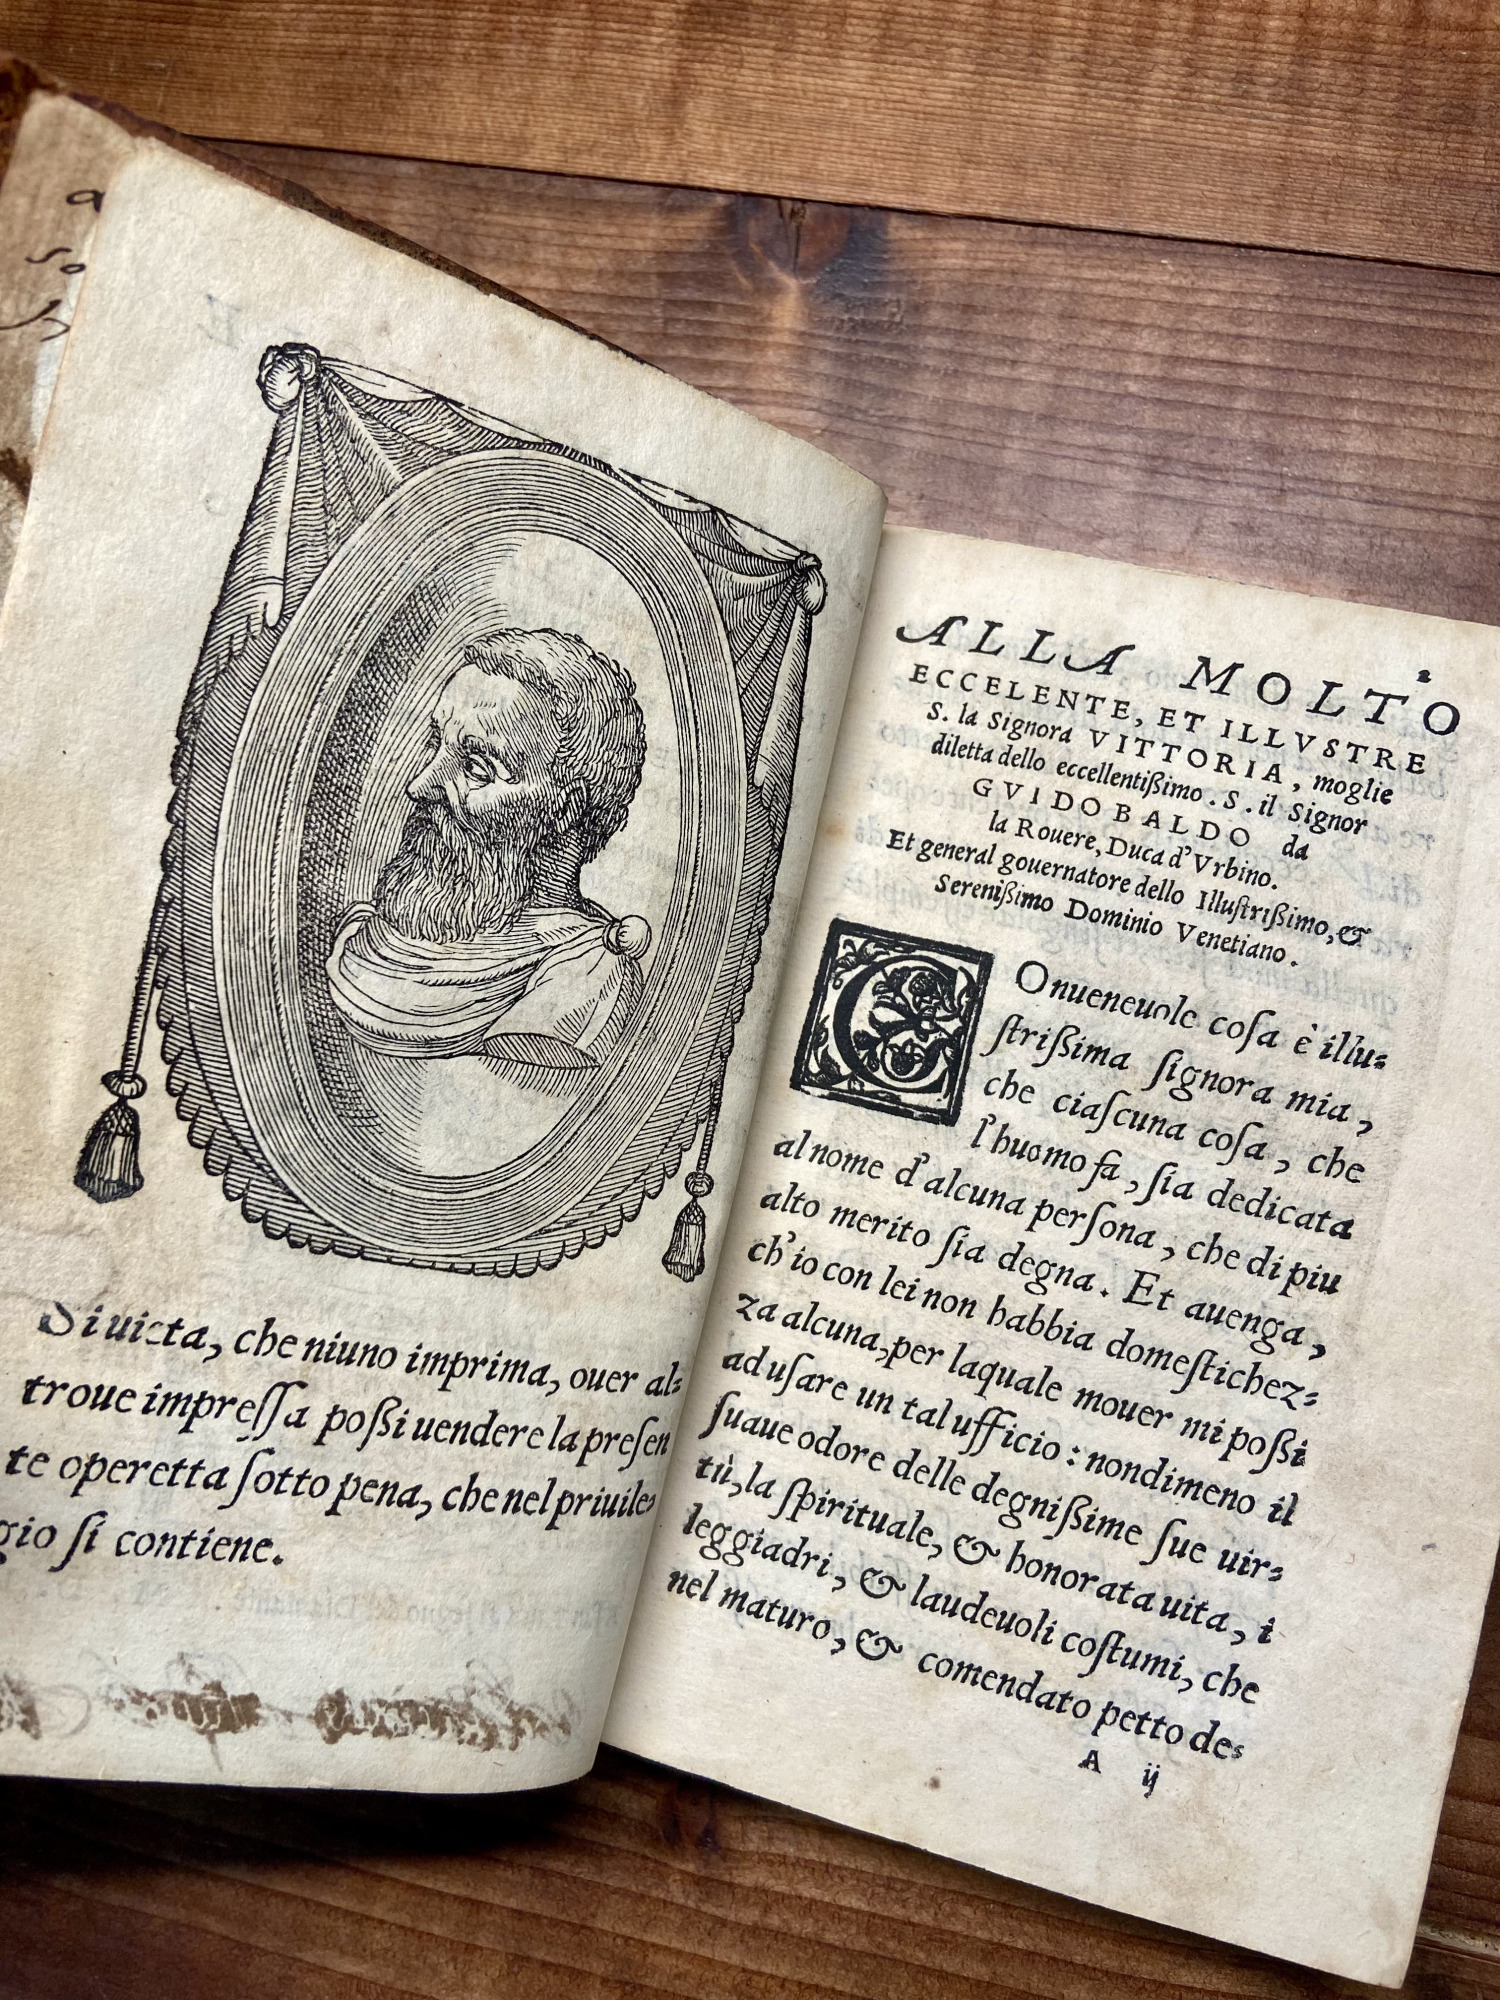 Si uieta, che niuno imprima, ouer al-
troue impreſſa poßi uendere la preſen
te operetta ſotto pena, che nel priuile-
gio ſi contiene.
2
ALLA MOLTO
ECCELENTE, ET ILLVSTRE
S. la Signora VITTORIA, moglie
diletta dello eccellentißimo. S. il Signor
GVIDOBALDO da
la Rouere, Duca d'Vrbino.
Et general gouernatore dello Illuſtrißimo, &
Serenißimo Dominio Venetiano.
COnueneuole coſa è illu-
ſtrißima ſignora mia,
che ciaſcuna coſa, che
l'huomo fa, ſia dedicata
al nome d'alcuna perſona, che di piu
alto merito ſia degna. Et auenga,
ch'io con lei non habbia domeſtichez-
za alcuna, per laquale mouer mi poßi
ad uſare un tal ufficio: nondimeno il
ſuaue odore delle degnißime ſue uir-
tù, la ſpirituale, & honorata uita, i
leggiadri, & laudeuoli coſtumi, che
nel maturo, & comendato petto de-
A ij